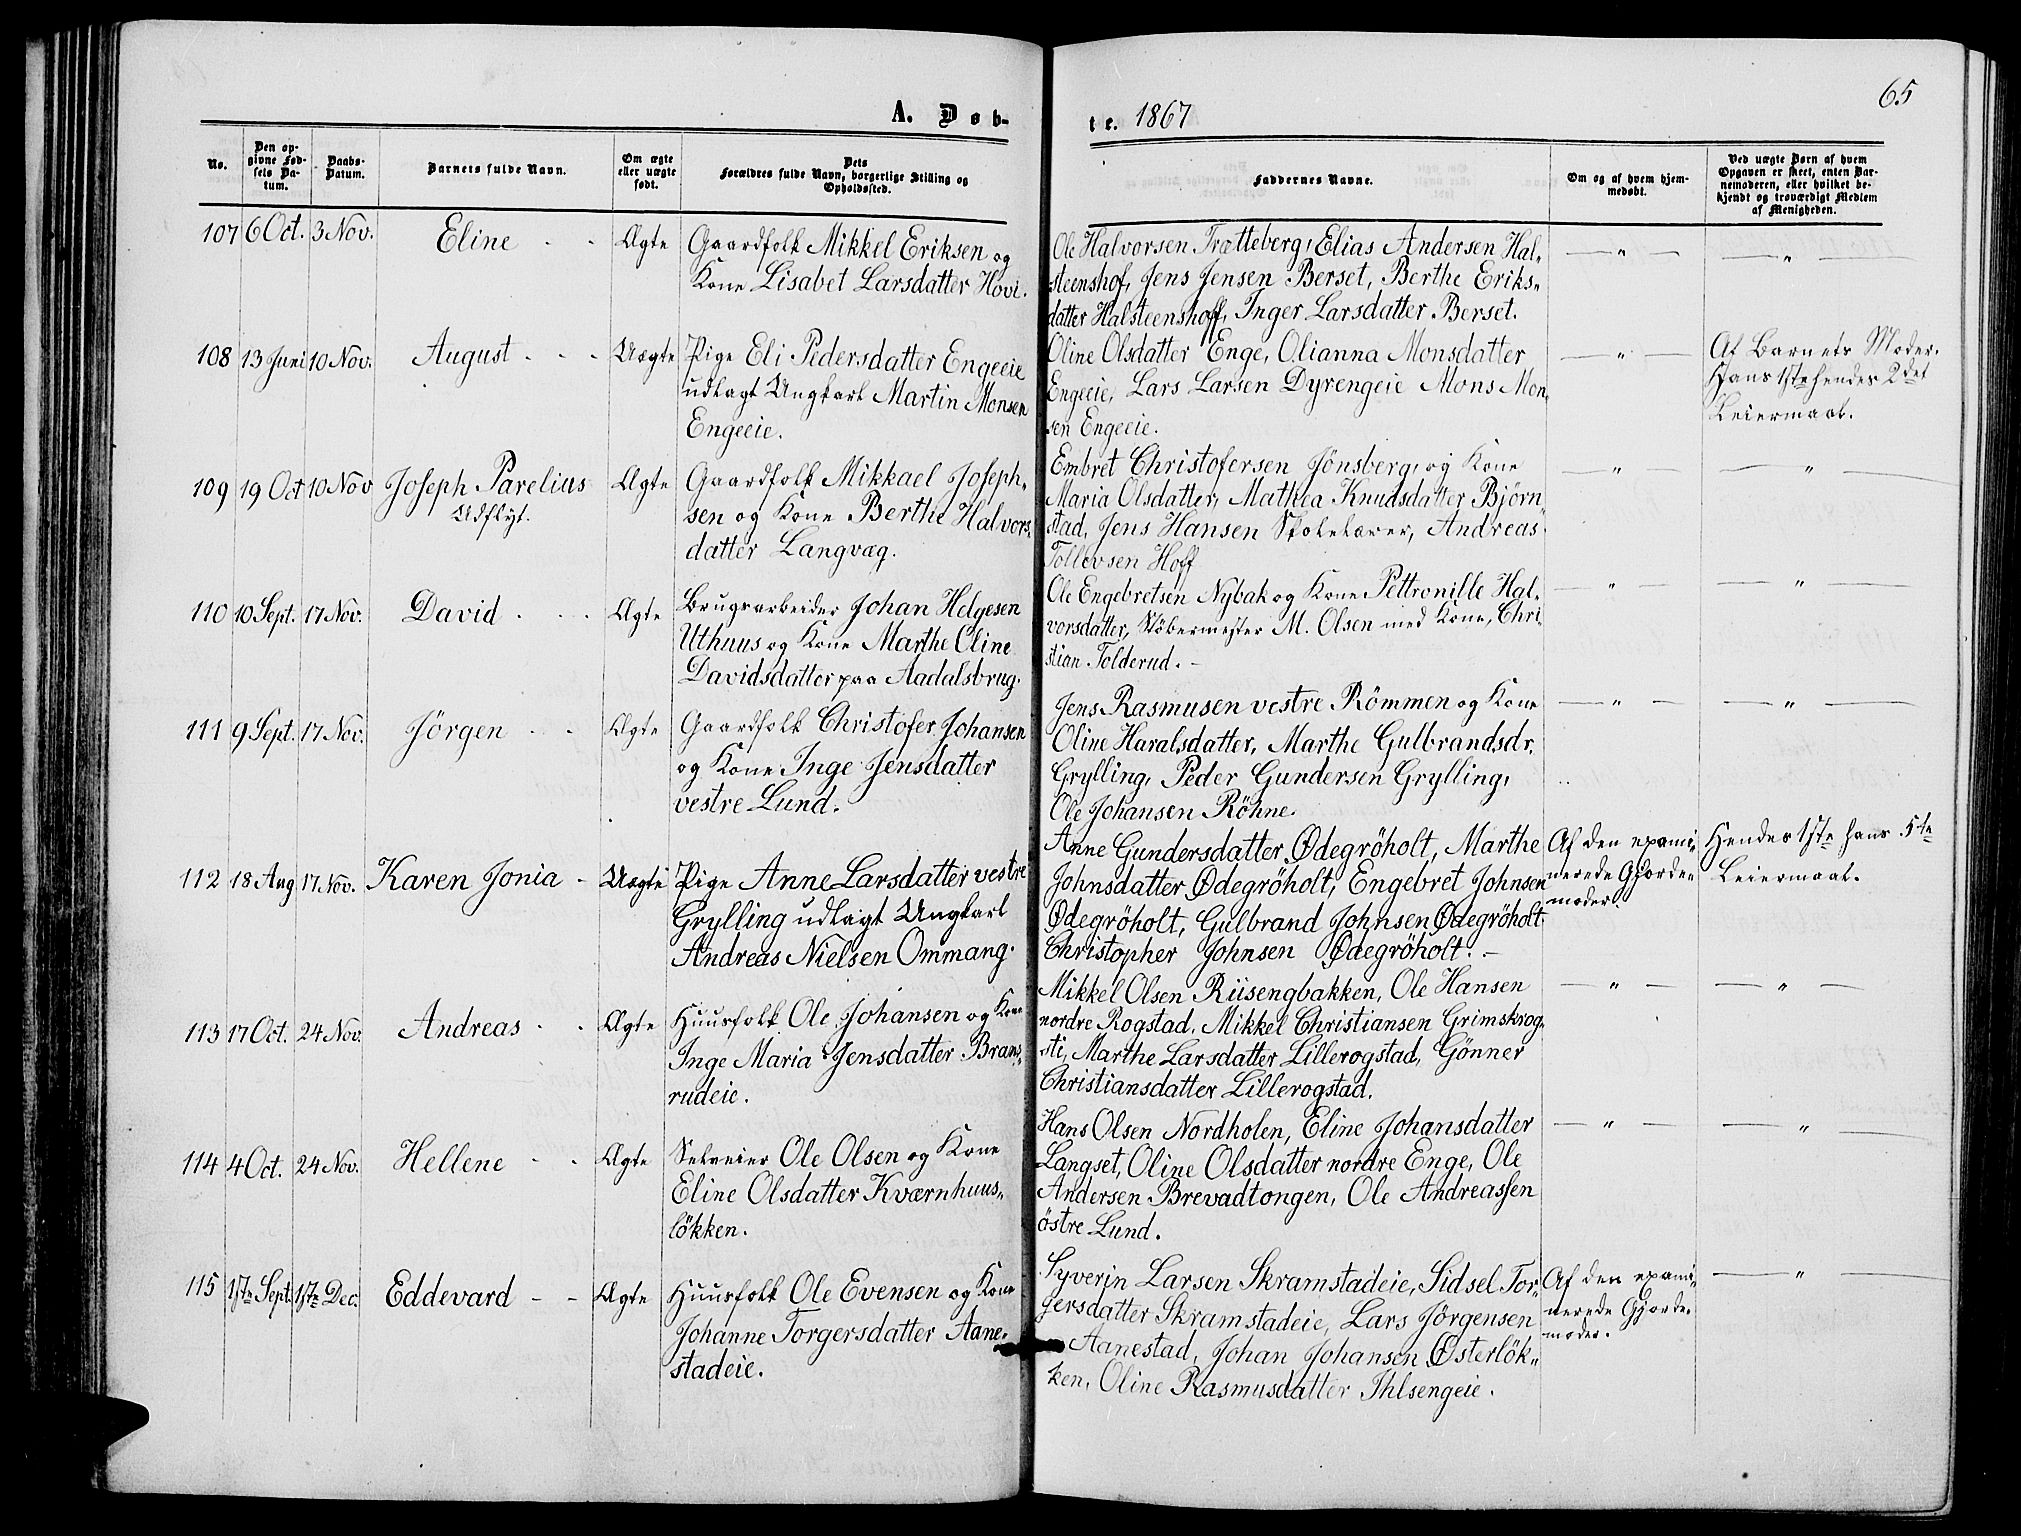 65
A. Døb-
te. 1867
No.
Den op-
givne Fød-
sels Da-
tum.
Daabs-
Datum.
Barnets fulde Navn.
Om ægte
eller uægte
født.
Dets
Forældres fulde Navn, borgerlige Stilling og
Opholdssted.
Faddernes Navne.
Om og af hvem hjem-
medøbt.
Ved uægte Børn af hvem
Opgaven er skeet, enten Bar-
nemoderen, eller hvilket be-
kjendt og troværdigt Medlem
af Menigheden.
107 6 Oct. 3 Nov. Eline - - Ægte
Gaardfolk Mikkel Eriksen og
Kone Lisabet Larsdatter Hovi.
Ole Halvorsen Trætteberg, Elias Andersen Hal-
steenshof, Jens Jensen Berset, Berthe Eriks-
datter Halsteenshoff, Inger Larsdatter Berset.
— " — — " —
108 13 Juni 10 Nov. August - - - Uægte
Pige Eli Pedersdatter Engeeie
udlagt Ungkarl Martin Monsen
Engeeie.
Oline Olsdatter Enge, Olianna Monsdatter
Engeeie, Lars Larsen Dyrengeie Mons Mon-
sen Engeeie.
— " —
Af Barnets Moder.
Hans 1ste hendes 2det
Leiermaal.
109 19 Oct 10 Nov Joseph Parelius
Udflyt.
Ægte
Gaardfolk Mikkael Joseph-
sen og Kone Berthe Halvors-
datter Langvæg.
Embret Christofersen Jönsberg, og Kone
Maria Olsdatter, Mathea Knudsdatter Björn-
stad, Jens Hansen Skolelærer, Andreas
Tollevsen Hoff
— " — — " —
110 10 Sept. 17 Nov. David - - - Ægte
Brugsarbeider Johan Helgesen
Uthuus og Kone Marthe Oline
Davidsdatter paa Aadalsbrug.
Ole Engebretsen Nybak og Kone Pettronille Hal-
vorsdatter, Støbermester M. Olsen med Kone, Chri-
stian Tolderud. -
— " — — " —
111 9 Sept. 17 Nov. Jörgen - - Ægte
Gaardfolk Christofer Johansen
og Kone Inge Jensdatter
vestre Lund.
Jens Rasmusen vestre Römmen og Kone
Oline Haralsdatter, Marthe Gulbrandsdr.
Grylling, Peder Gundersen Grylling,
Ole Johansen Röhne.
— " — — " —
112 18 Aug 17 Nov. Karen Jonia - Uægte
Pige Anne Larsdatter vestre
Grylling udlagt Ungkarl
Andreas Nielsen Ommang.
Anne Gundersdatter Ødegröholt, Marthe
Johnsdatter Ødegröholt, Engebret Johnsen
Ødegröholt, Gulbrand Johnsen Ødegröholt
Christopher Johnsen Ødegröholt. -
Af den exami-
nerede Gjorde-
moder.
Hendes 1ste hans 5te
Leiermaal.
113 17 Oct. 24 Nov. Andreas - - Ægte
Huusfolk Ole Johansen og Kone
Inge Maria Jensdatter Brans-
rudeie.
Mikkel Olsen Riisengbakken, Ole Hansen
nordre Rogstad, Mikkel Christiansen Grimskrog-
sti, Marthe Larsdatter Lillerogstad, Gönner
Christiansdatter Lillerogstad.
— " — — " —
114 4 Oct. 24 Nov. Hellene - - Ægte
Selveier Ole Olsen og Kone
Eline Olsdatter Kværnhuus-
lökken.
Hans Olsen Nordholen, Eline Johansdatter
Langset, Oline Olsdatter nordre Enge, Ole
Andersen Brevadtongen, Ole Andreassen
östre Lund.
— " — — " —
115 1ste Sept. 1ste Dec. Eddevard - - Ægte
Huusfolk Ole Evensen og Kone
Johanne Torgersdatter Aane-
stadeie.
Syverin Larsen Skramstadeie, Sidsel Tor-
gersdatter Skramstadeie, Lars Jörgensen
Aanestad, Johan Johansen Østerlök-
ken, Oline Rasmusdatter Ihlsengeie.
Af den exami-
nerede Gjorde-
moder.
— " —